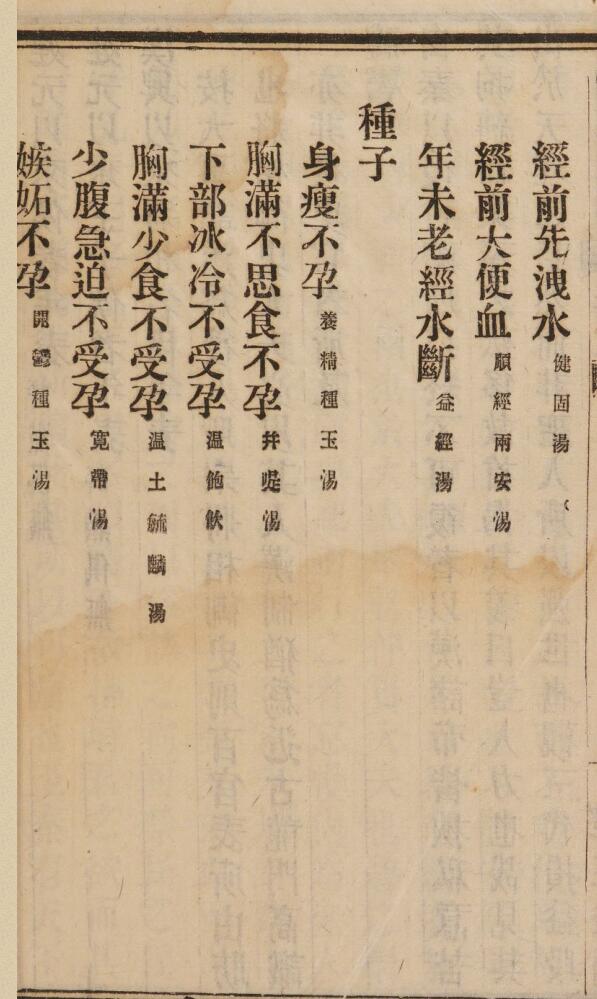 經前先洩水 健固湯
經前大便血 順經兩安湯
年未老經水斷 益經湯
種子
身瘦不孕 養精種玉湯
胸滿不思食不孕 井湯
下部冰冷不受孕 溫飽飲
胸滿少食不受孕 溫土毓麟湯
少腹急迫不受孕 寬帶湯
嫉妬不孕 開鬱種玉湯